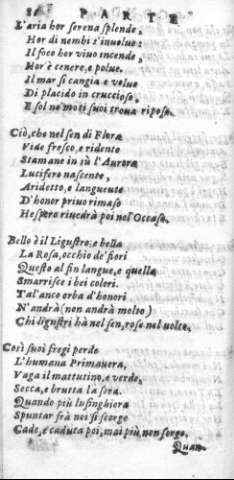 86 PARTE
L'aria hor serena splende,
Hor di nembi s'inuolue:
Il foco hor viuo incende,
Hor è cenere, e polue.
Il mar si cangia e volue
Di placido in cruccioso,
E sol ne moti suoi troua riposo.
Ciò, che nel sen di Flora
Vide fresco, e ridente
Stamane in sù l'Aurora
Lucifero nascente,
Aridetto, e languente
D'honor priuo rimaso
Hespero riuedrà poi nel'Occaso.
Bello è il Ligustro, e bella
La Rosa, occhio de' fiori
Questo al fin langue, e quella
Smarrisce i bei colori.
Tal'anco orba d'honori
N'andrà (non andrà molto)
Chi ligustri hà nel sen, rose nel volto.
Così suoi fregi perde
L'humana Primauera,
Vaga il mattutino, e verde,
Secca, e brutta la sera.
Quando più lusinghiera
Spuntar frà noi si scorge
Cade, e caduta poi, mai più non sorge.
Quan-